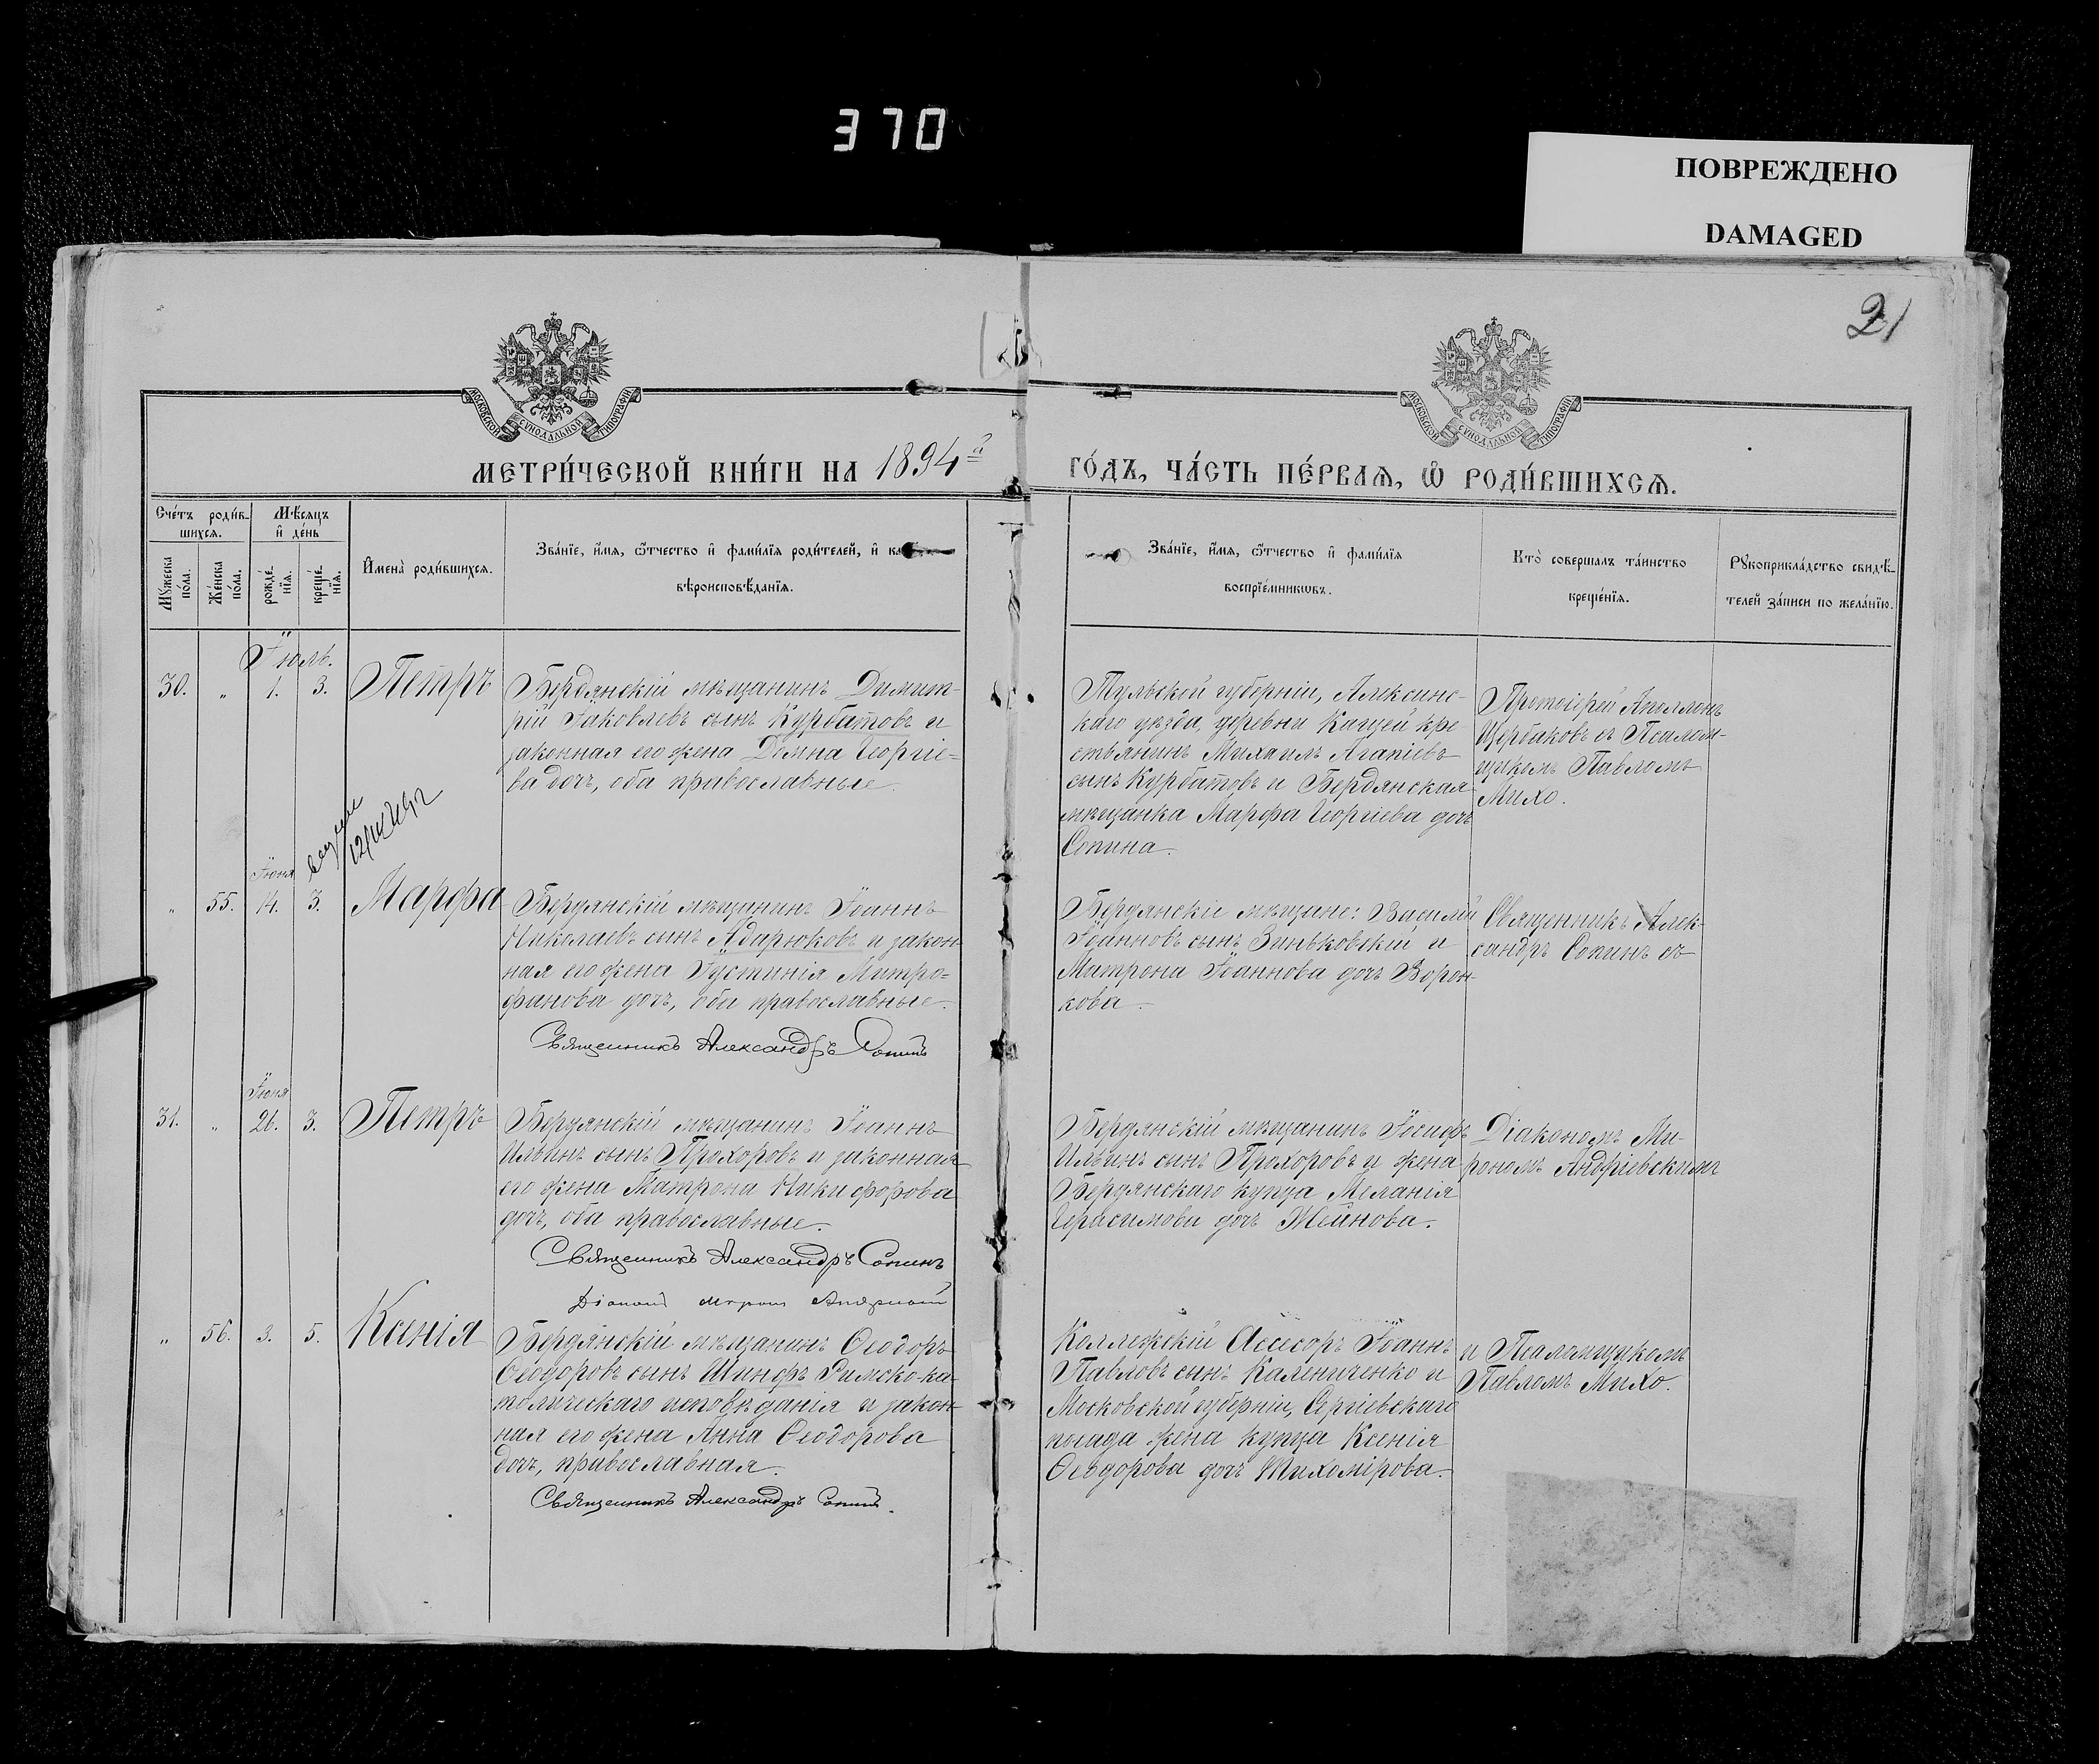 370
ПОВРЕЖДЕНО
DAMAGED
21
МОСКОВСКОЙ СУНОДАЛЬНОЙ ТИПОГРАФІИ
МОСКОВСКОЙ СУНОДАЛЬНОЙ ТИПОГРАФІИ
МЕТРИ́ЧЕСКОЙ КНИ́ГИ НА 1894й
ГО́ДЪ, ЧА́СТЬ ПЕ́РВАѦ, Ѡ҆ РОДИ́ВШИХСѦ.
Сче́тъ роди́в-
шихсѧ.
Мѣ́сяцъ
и҆ де́нь
Мꙋ́жеска
по́ла.
Же́нска
по́ла.
рожде́-
нїѧ.
креще́-
нїѧ.
И҆мена̀ роди́вшихсѧ.
Зва́нїе, и҆́мѧ, ѻ҆́тчество и҆ фами́лїѧ роди́телей, и҆
вѣроисповѣ́данїѧ.
Зва́нїе, и҆́мѧ, ѻ҆́тчество и҆ фами́лїѧ
воспрїе́мникѡвъ.
Кто̀ соверша́лъ та́инство
креще́нїѧ.
Рꙋкоприкла́дство свидѣ́-
телей за́писи по жела́нїю.
Іюль.
30. " 1. 3. Петръ
Бердянскій мѣщанинъ Димит-
рій Іаковлевъ сынъ Курбатовъ и
законная его жена Домна Георгіе-
ва дочь, оба православные.
Тульской губерніи, Алексинс-
каго уѣзда, деревни Кащей кре
стьянинъ Михаилъ Агапіевъ
сынъ Курбатовъ и Бердянская
мѣщанка Марфа Георгіева дочь
Сопина.
Протоіерей Аполлонъ
Щербаковъ съ Псалом-
щикомъ Павломъ
Михо.
Іюня
" 55. 14. 3. Марфа
Бердянскій мѣщанинъ Іоаннъ
Николаевъ сынъ Адарюковъ и закон-
ная его жена Іустинія Митро-
фанова дочь, оба православные.
Священникъ Александръ Сопинъ
Бердянскіе мѣщане: Василій
Іоанновъ сынъ Зиньковскій и
Матрона Іоаннова дочь Ворон-
кова.
Священникъ Алек-
сандръ Сопинъ съ
Іюня
31. " 26. 3. Петръ
Бердянскій мѣщанинъ Іоаннъ
Ильинъ сынъ Прохоровъ и законная
его жена Матрона Никифорова
дочь, оба православные.
Священникъ Александръ Сопинъ
Бердянскій мѣщанинъ Іосифъ
Ильинъ сынъ Прохоровъ и жена
Бердянскаго купца Меланія
Герасимова дочь Жейнова.
Діакономъ Ми-
рономъ Андріевскимъ
" 56. 3. 5. Ксенія
Бердянскій мѣщанинъ Ѳеодоръ
Ѳеодоровъ сынъ Шинфъ Римско-ка-
толическаго исповѣданія и закон-
ная его жена Анна Ѳеодорова
дочь, православная.
Священникъ Александръ Сопинъ.
Коллежскій Ассесоръ Іоаннъ
Павловъ сынъ Калениченко и
Московской губерніи, Сергіевскаго
посада жена купца Ксенія
Ѳеодорова дочь Тихомірова.
и Псаломщикомъ
Павломъ Михо.